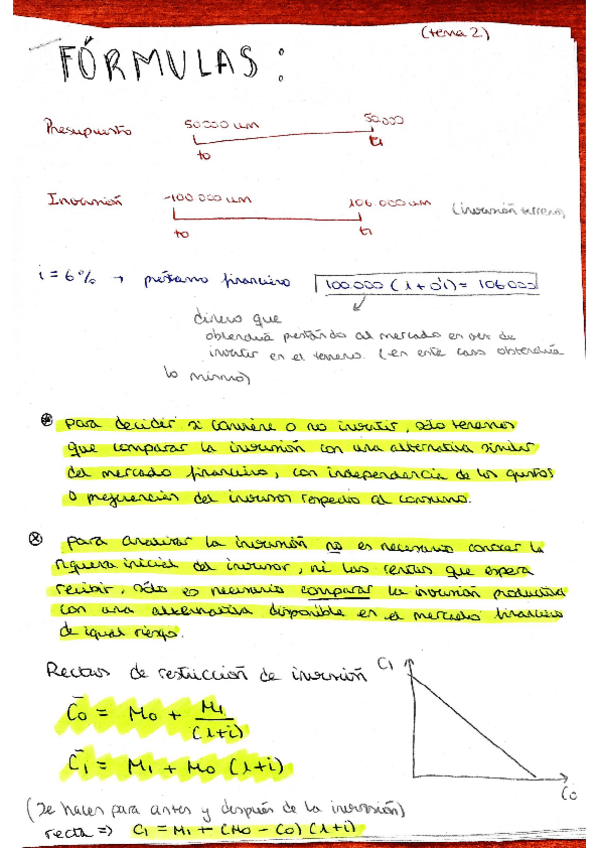 (tema 2)
FÓRMULAS:
Presupuesto 50.000 um 50.000
t0 t1
Inversión -100.000 um 106.000 um (inversión terreno)
t0 t1
i = 6% → préstamo financiero 100.000 (1 + 0'i) = 106000
dinero que
obtendría prestando al mercado en vez de
invertir en el terreno. (en este caso obtendría
lo mismo)
para decidir si conviene o no invertir, sólo tenemos
que comparar la inversión con una alternativa similar
del mercado financiero, con independencia de los gustos
o preferencias del inversor respecto al consumo.
para analizar la inversión no es necesario conocer la
riqueza inicial del inversor, ni las rentas que espera
recibir, sólo es necesario comparar la inversión productiva
con una alternativa disponible en el mercado financiero
de igual riesgo.
Rectas de restricción de inversión C1
C̄0 = M0 + M1/(1+i)
C̄1 = M1 + M0 (1+i)
C0
(Se hacen para antes y después de la inversión)
recta => C1 = M1 + (M0 - C0) (1+i)